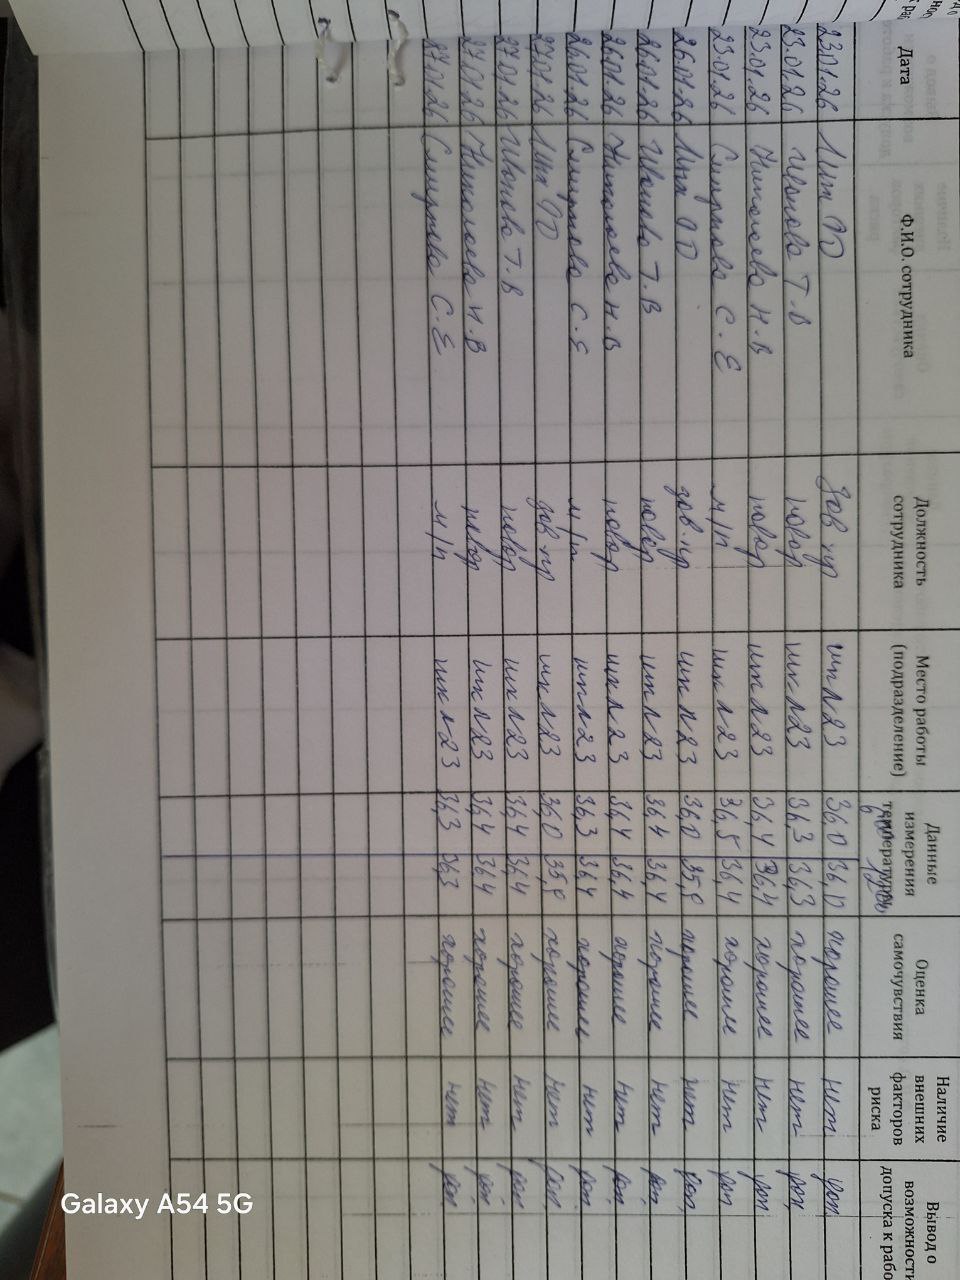 Дата Ф.И.О. сотрудника Должность сотрудника Место работы (подразделение) Данные измерения температуры Оценка самочувствия Наличие внешних факторов риска Вывод о возможности допуска к рабо
23.01.26 зав пр шк N23 36,0 36,0 хорошее нет
23.01.26 Иванова Т. В повар шк N23 36,3 36,3 хорошее нет
23.01.26 Николаева Н. В повар шк N23 36,4 36,4 хорошее нет
23.01.26 Смирнова С. Е м/п шк N23 36,5 36,4 хорошее нет
26.01.26 зав. пр шк N23 36,0 35,8 хорошее нет
26.01.26 Иванова Т. В повар шк N23 36,4 36,4 хорошее нет
26.01.26 Николаева Н. В повар шк N23 36,4 36,4 хорошее нет
26.01.26 Смирнова С. Е м/п шк N23 36,3 36,4 хорошее нет
27.01.26 зав пр шк N23 36,0 35,8 хорошее нет
27.01.26 Иванова Т. В повар шк N23 36,4 36,4 хорошее нет
27.01.26 Николаева Н. В повар шк N23 36,4 36,4 хорошее нет
27.01.26 Смирнова С. Е м/п шк N23 36,3 36,3 хорошее нет
Galaxy A54 5G